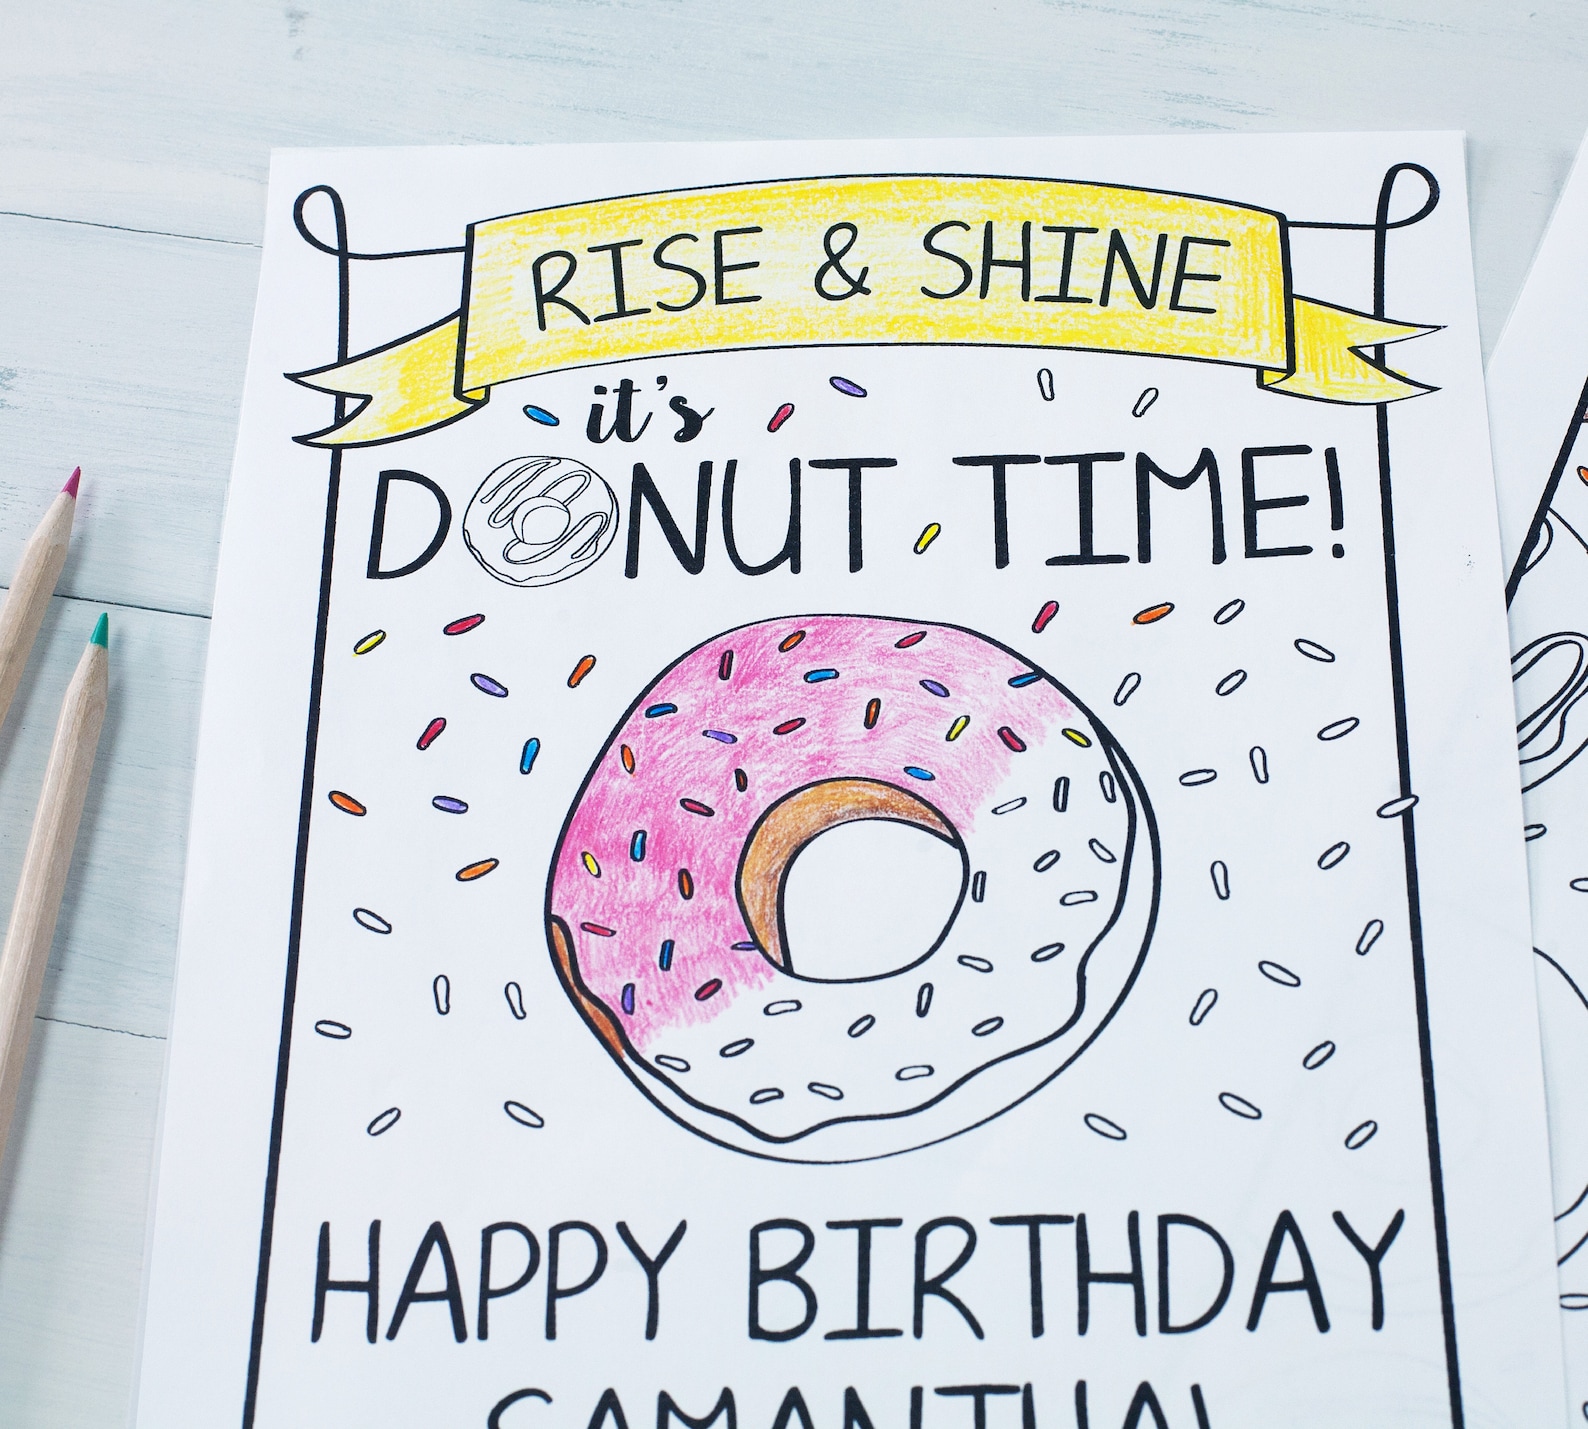 RISE & SHINE
it's
DONUT TIME!
HAPPY BIRTHDAY
SAMANTHA!